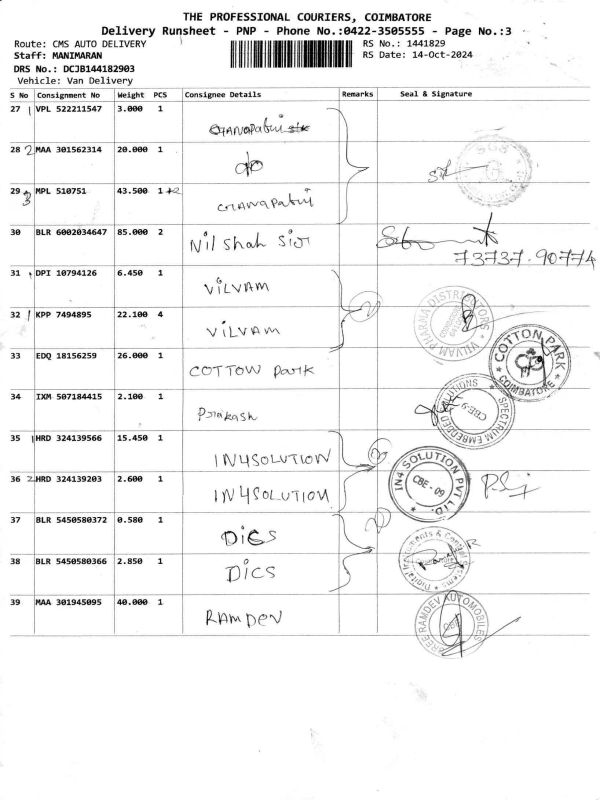 THE PROFESSIONAL COURIERS, COIMBATORE
Delivery Runsheet - PNP - Phone No.:0422-3505555 - Page No.:3
Route: CMS AUTO DELIVERY RS No.: 1441829
Staff: MANIMARAN RS Date: 14-Oct-2024
DRS No.: DCJB144182903
Vehicle: Van Delivery
S No Consignment No Weight PCS Consignee Details Remarks Seal & Signature
27 1 VPL 522211547 3.000 1
28 2 MAA 301562314 20.000 1 do
SGS
29 3 MPL 510751 43.500 1 +2
30 BLR 6002034647 85.000 2 Nil Shah
73737-90774
31 1 DPI 10794126 6.450 1 VILVAM
2
32 1 KPP 7494895 22.100 4 VILVAM
VILVAM PHARMA DISTRIBUTORS
33 EDQ 18156259 26.000 1 COTTOW Park
COTTON PARK COIMBATORE
34 IXM 507184415 2.100 1 Prakash
SPECTRUM EMBEDDED SOLUTIONS CBE-9
35 1 HRD 324139566 15.450 1 IN4SOLUTION
2
36 2 HRD 324139203 2.600 1 IN4SOLUTION
IN4 SOLUTION PVT LTD. CBE-09
37 BLR 5450580372 0.580 1 DICS
2
38 BLR 5450580366 2.850 1 DICS
Digital Instruments & Control Systems
39 MAA 301945095 40.000 1 RAMDEV
SHREE RAMDEV AUTOMOBILES CBE